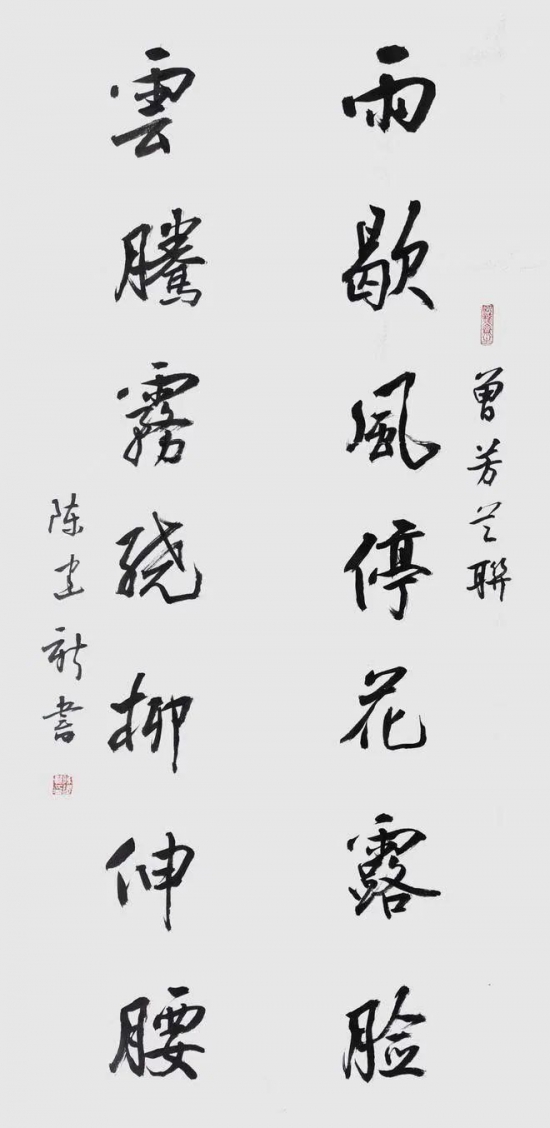 曾芳兰聯
雨歇風停花露脸
雲騰霧绕柳伸腰
陈建新書